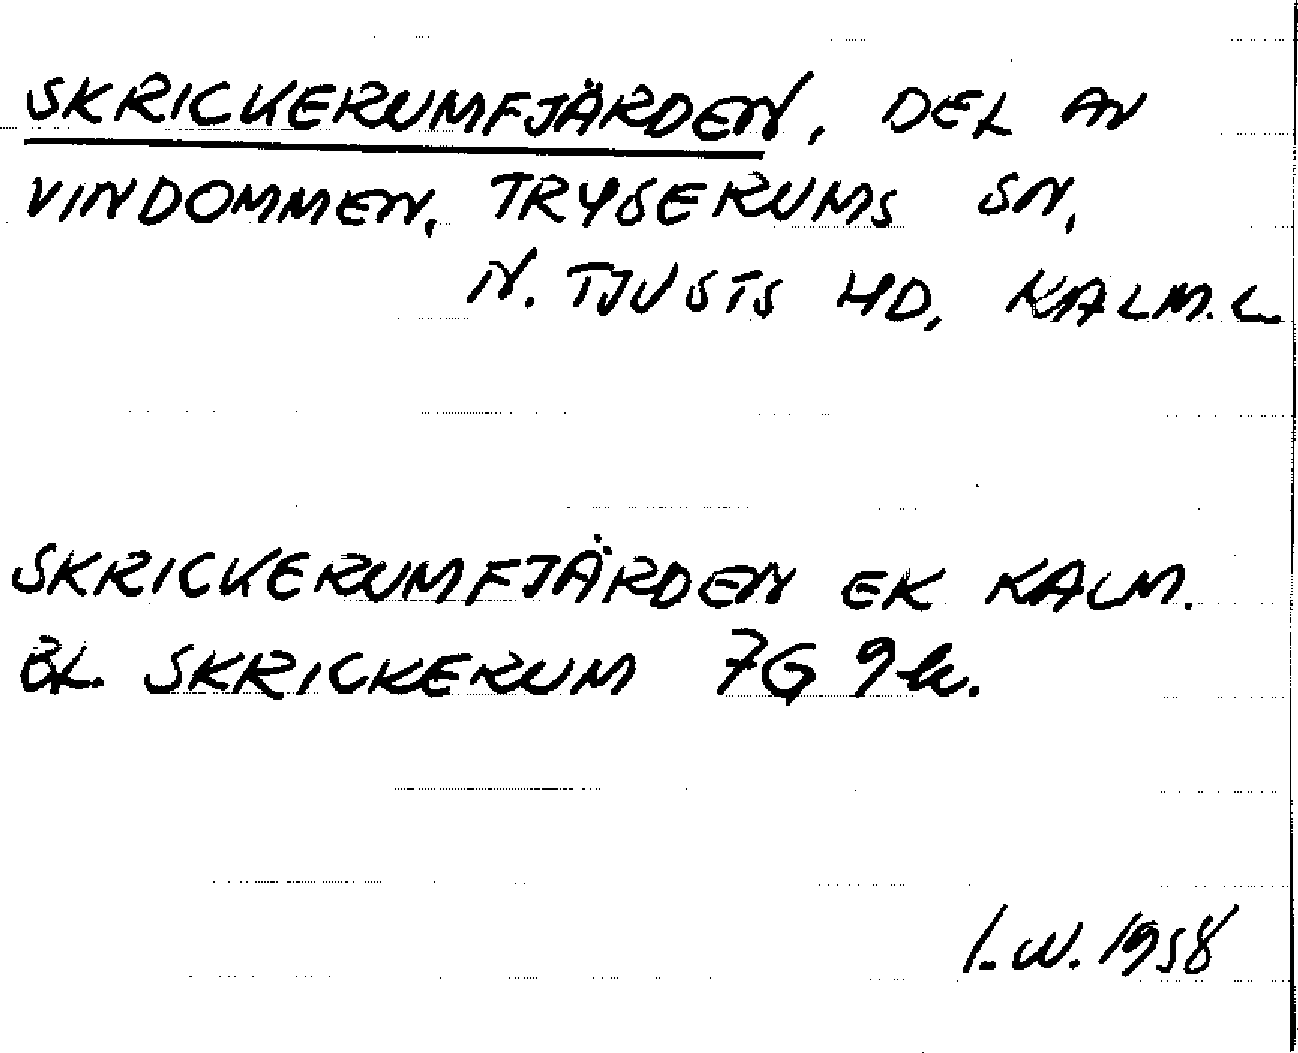 SKRICKERUMFJÄRDEN, DEL AV
VINDOMMEN, TRYSERUMS SN,
N. TJUSTS HD, KALM. L.
SKRICKERUMFJÄRDEN EK KALM.
BL. SKRICKERUM 7G 9h.
I.W. 1958